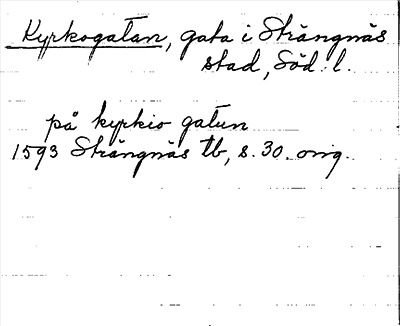 Kyrkogatan, gata i Strängnäs
stad, Söd. l.
på kyrkio gatun
1593 Strängnäs tb, s. 30. orig.